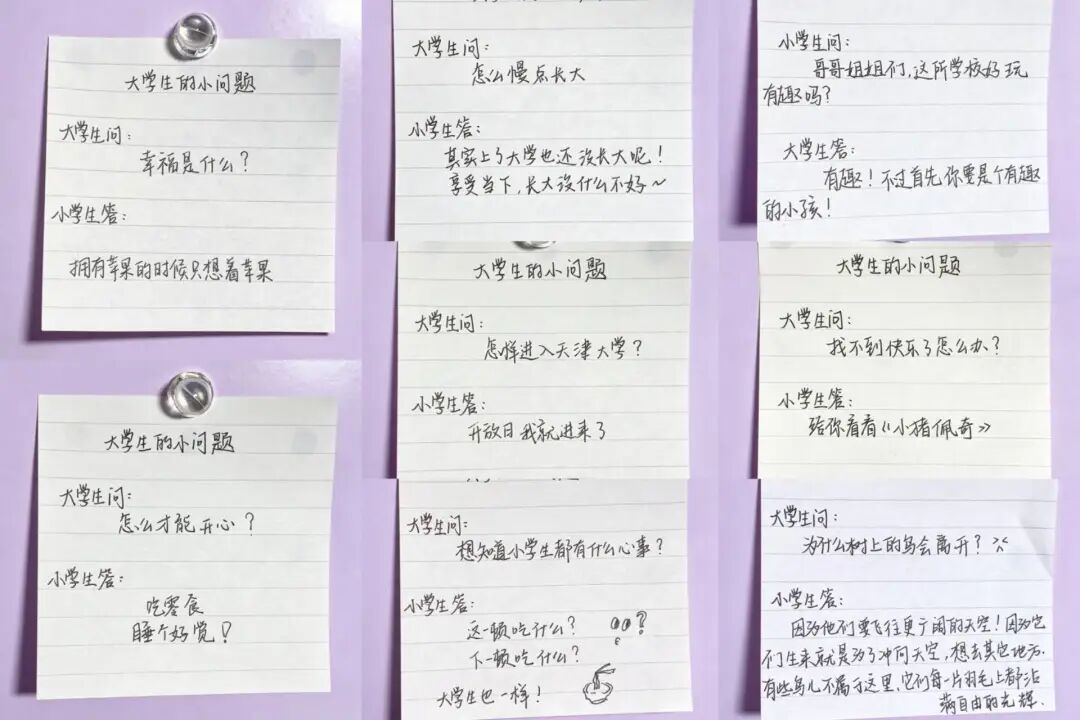 大学生的小问题
大学生问：
幸福是什么？
小学生答：
拥有苹果的时候只想着苹果
大学生的小问题
大学生问：
怎么才能开心？
小学生答：
吃零食
睡个好觉！
大学生问：
怎么慢点长大
小学生答：
其实上了大学也还没长大呢！
享受当下，长大没什么不好～
大学生的小问题
大学生问：
怎样进入天津大学？
小学生答：
开放日我就进来了
大学生问：
想知道小学生都有什么心事？
小学生答：
这一顿吃什么？
下一顿吃什么？
大学生也一样！
小学生问：
哥哥姐姐们，这所学校好玩
有趣吗？
大学生答：
有趣！不过首先你要是个有趣
的小孩！
大学生的小问题
大学生问：
找不到快乐了怎么办？
小学生答：
给你看看《小猪佩奇》
大学生问：
为什么树上的鸟会离开？
小学生答：
因为他们要飞往更广阔的天空！因为它
们生来就是为了冲向天空，想去其它地方.
有些鸟儿不属于这里，它们每一片羽毛上都沾
满自由的光辉.